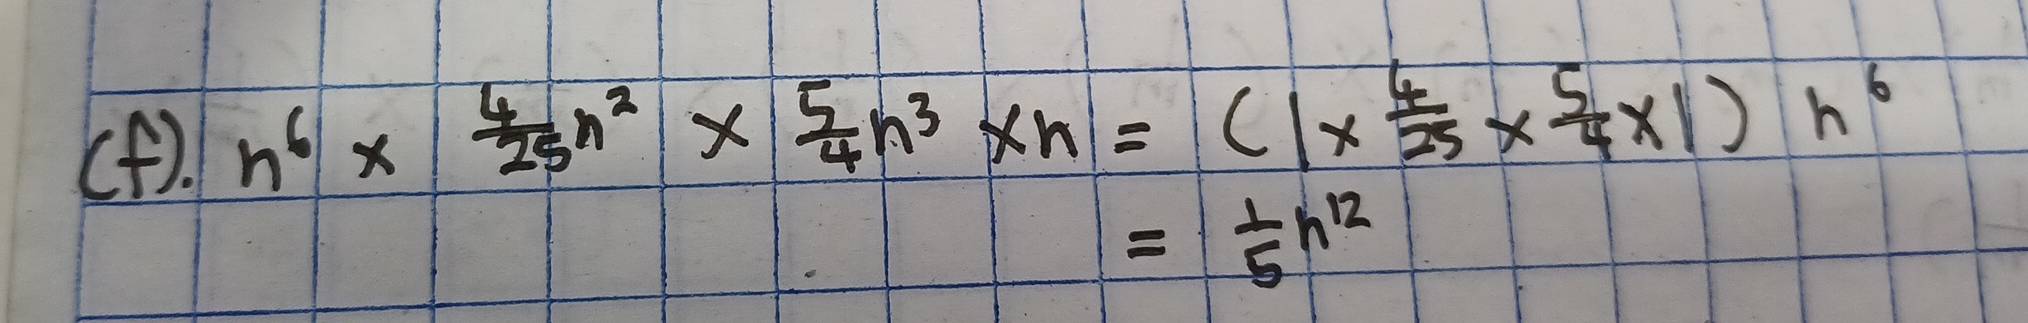 (f). n⁶ × 4/25 n² × 5/4 n³ × n = (1 × 4/25 × 5/4 × 1) n⁶
= 1/5 n¹²